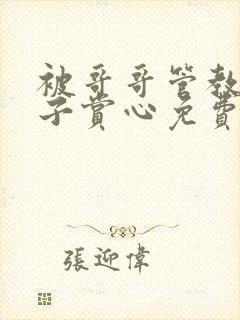 被哥哥管教
子赏心免費
張迎偉